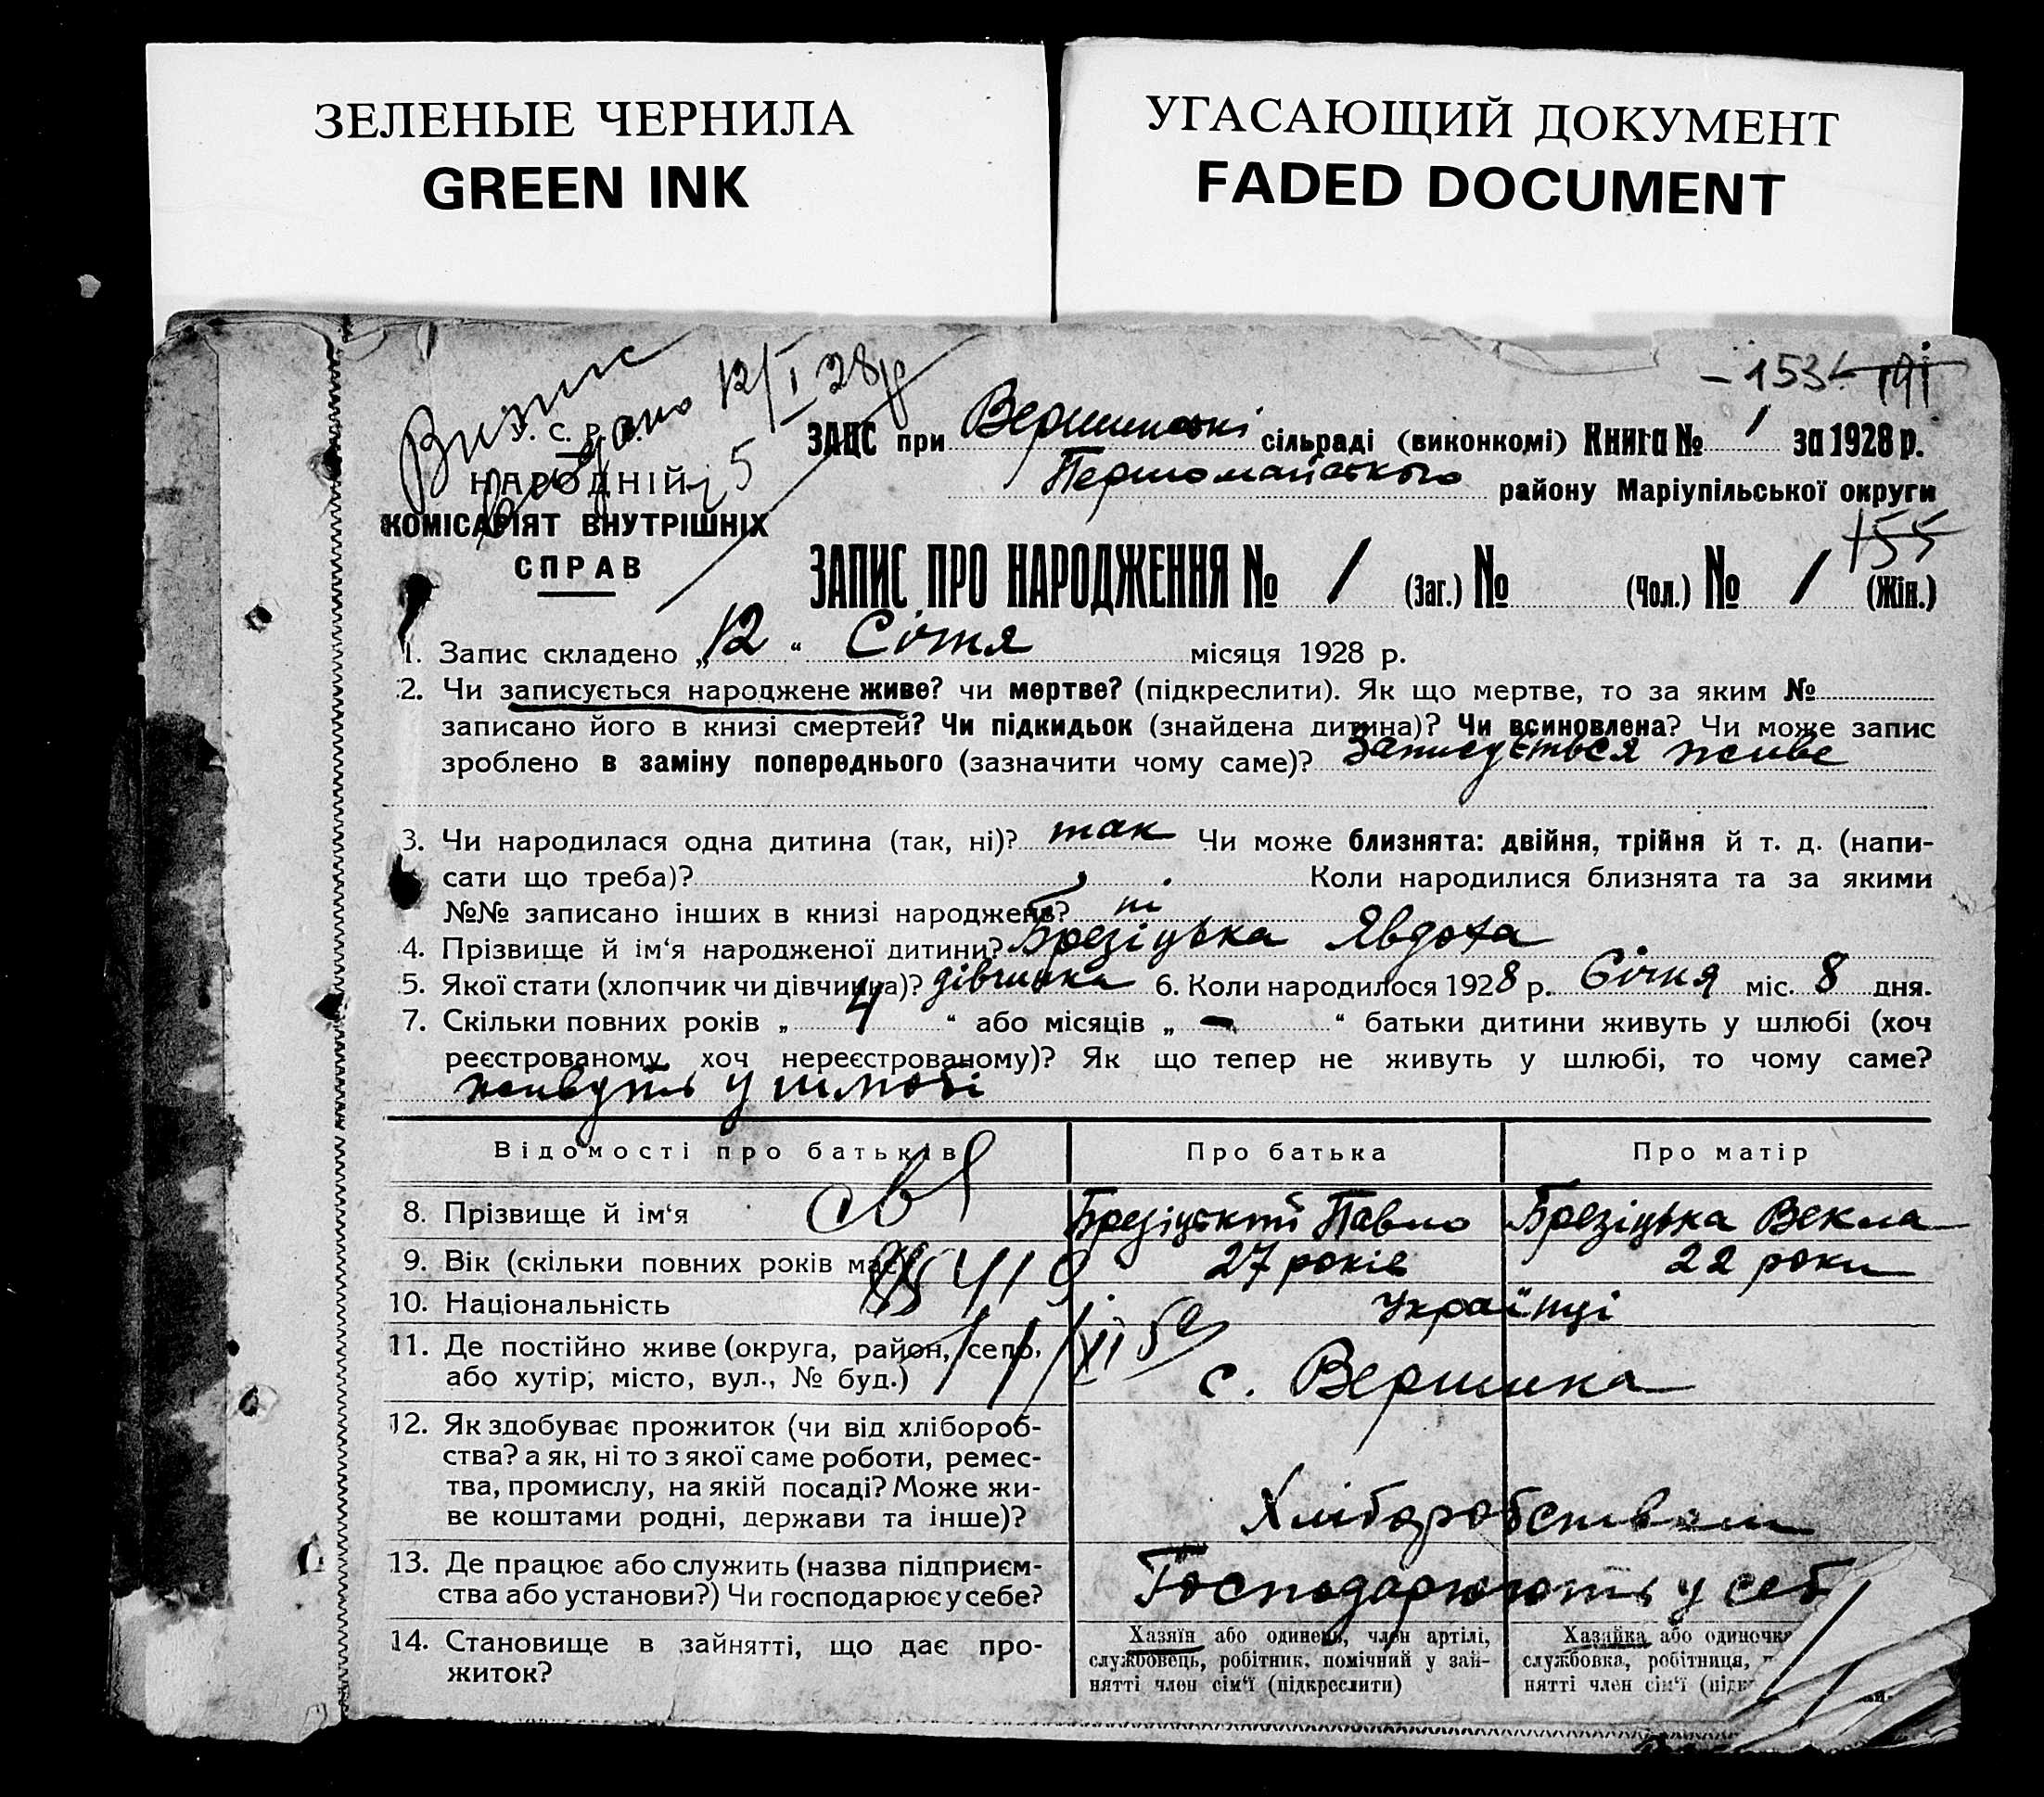 ЗЕЛЕНЫЕ ЧЕРНИЛА
GREEN INK
УГАСАЮЩИЙ ДОКУМЕНТ
FADED DOCUMENT
Випис
видано 12/I 28р
№ 5
– 153
191
У. С. Р. Р.
НАРОДНІЙ
КОМІСАРІЯТ ВНУТРІШНІХ
СПРАВ
ЗАГС при Вершинській сільраді (виконкомі) Книга № 1 за 1928 р.
Першомайського району Маріупільської округи
155
ЗАПИС ПРО НАРОДЖЕННЯ № 1 (Заг.) № (Чол.) № 1 (Жін.)
1. Запис складено „12“ Січня місяця 1928 р.
2. Чи записується народжене живе? чи мертве? (підкреслити). Як що мертве, то за яким №
записано його в книзі смертей? Чи підкидьок (знайдена дитина)? Чи всиновлена? Чи може запис
зроблено в заміну попереднього (зазначити чому саме)? Записується живе
3. Чи народилася одна дитина (так, ні)? так Чи може близнята: двійня, трійня й т. д. (напи-
сати що треба)? Коли народилися близнята та за якими
№№ записано інших в книзі народжень? ні
4. Прізвище й ім‘я народженої дитини? Брезіцька Явдоха
5. Якої стати (хлопчик чи дівчинка)? дівчинка 6. Коли народилося 1928 р. Січня міс. 8 дня.
7. Скільки повних років „ 4 “ або місяців „ – “ батьки дитини живуть у шлюбі (хоч
реєстрованому, хоч нереєстрованому)? Як що тепер не живуть у шлюбі, то чому саме?
живуть у шлюбі
Відомості про батьків Про батька Про матір
8. Прізвище й ім‘я Брезіцький Павло Брезіцька Векла
9. Вік (скільки повних років має) 27 років 22 роки
10. Національність Українці
11. Де постійно живе (округа, район, село,
або хутір; місто, вул., № буд.) с. Вершина
12. Як здобуває прожиток (чи від хлібороб-
ства? а як, ні то з якої саме роботи, ремес-
тва, промислу, на якій посаді? Може жи-
ве коштами родні, держави та інше)? Хліборобством
13. Де працює або служить (назва підприєм-
ства або установи?) Чи господарює у себе? Господарюють у себ
14. Становище в зайнятті, що дає про-
житок?
Хазяїн або одинець, член артілі,
службовець, робітник, помічний у зай-
нятті член сім‘ї (підкреслити)
Хазяйка або одиночка
службовка, робітниця,
нятті член сім‘ї (підк